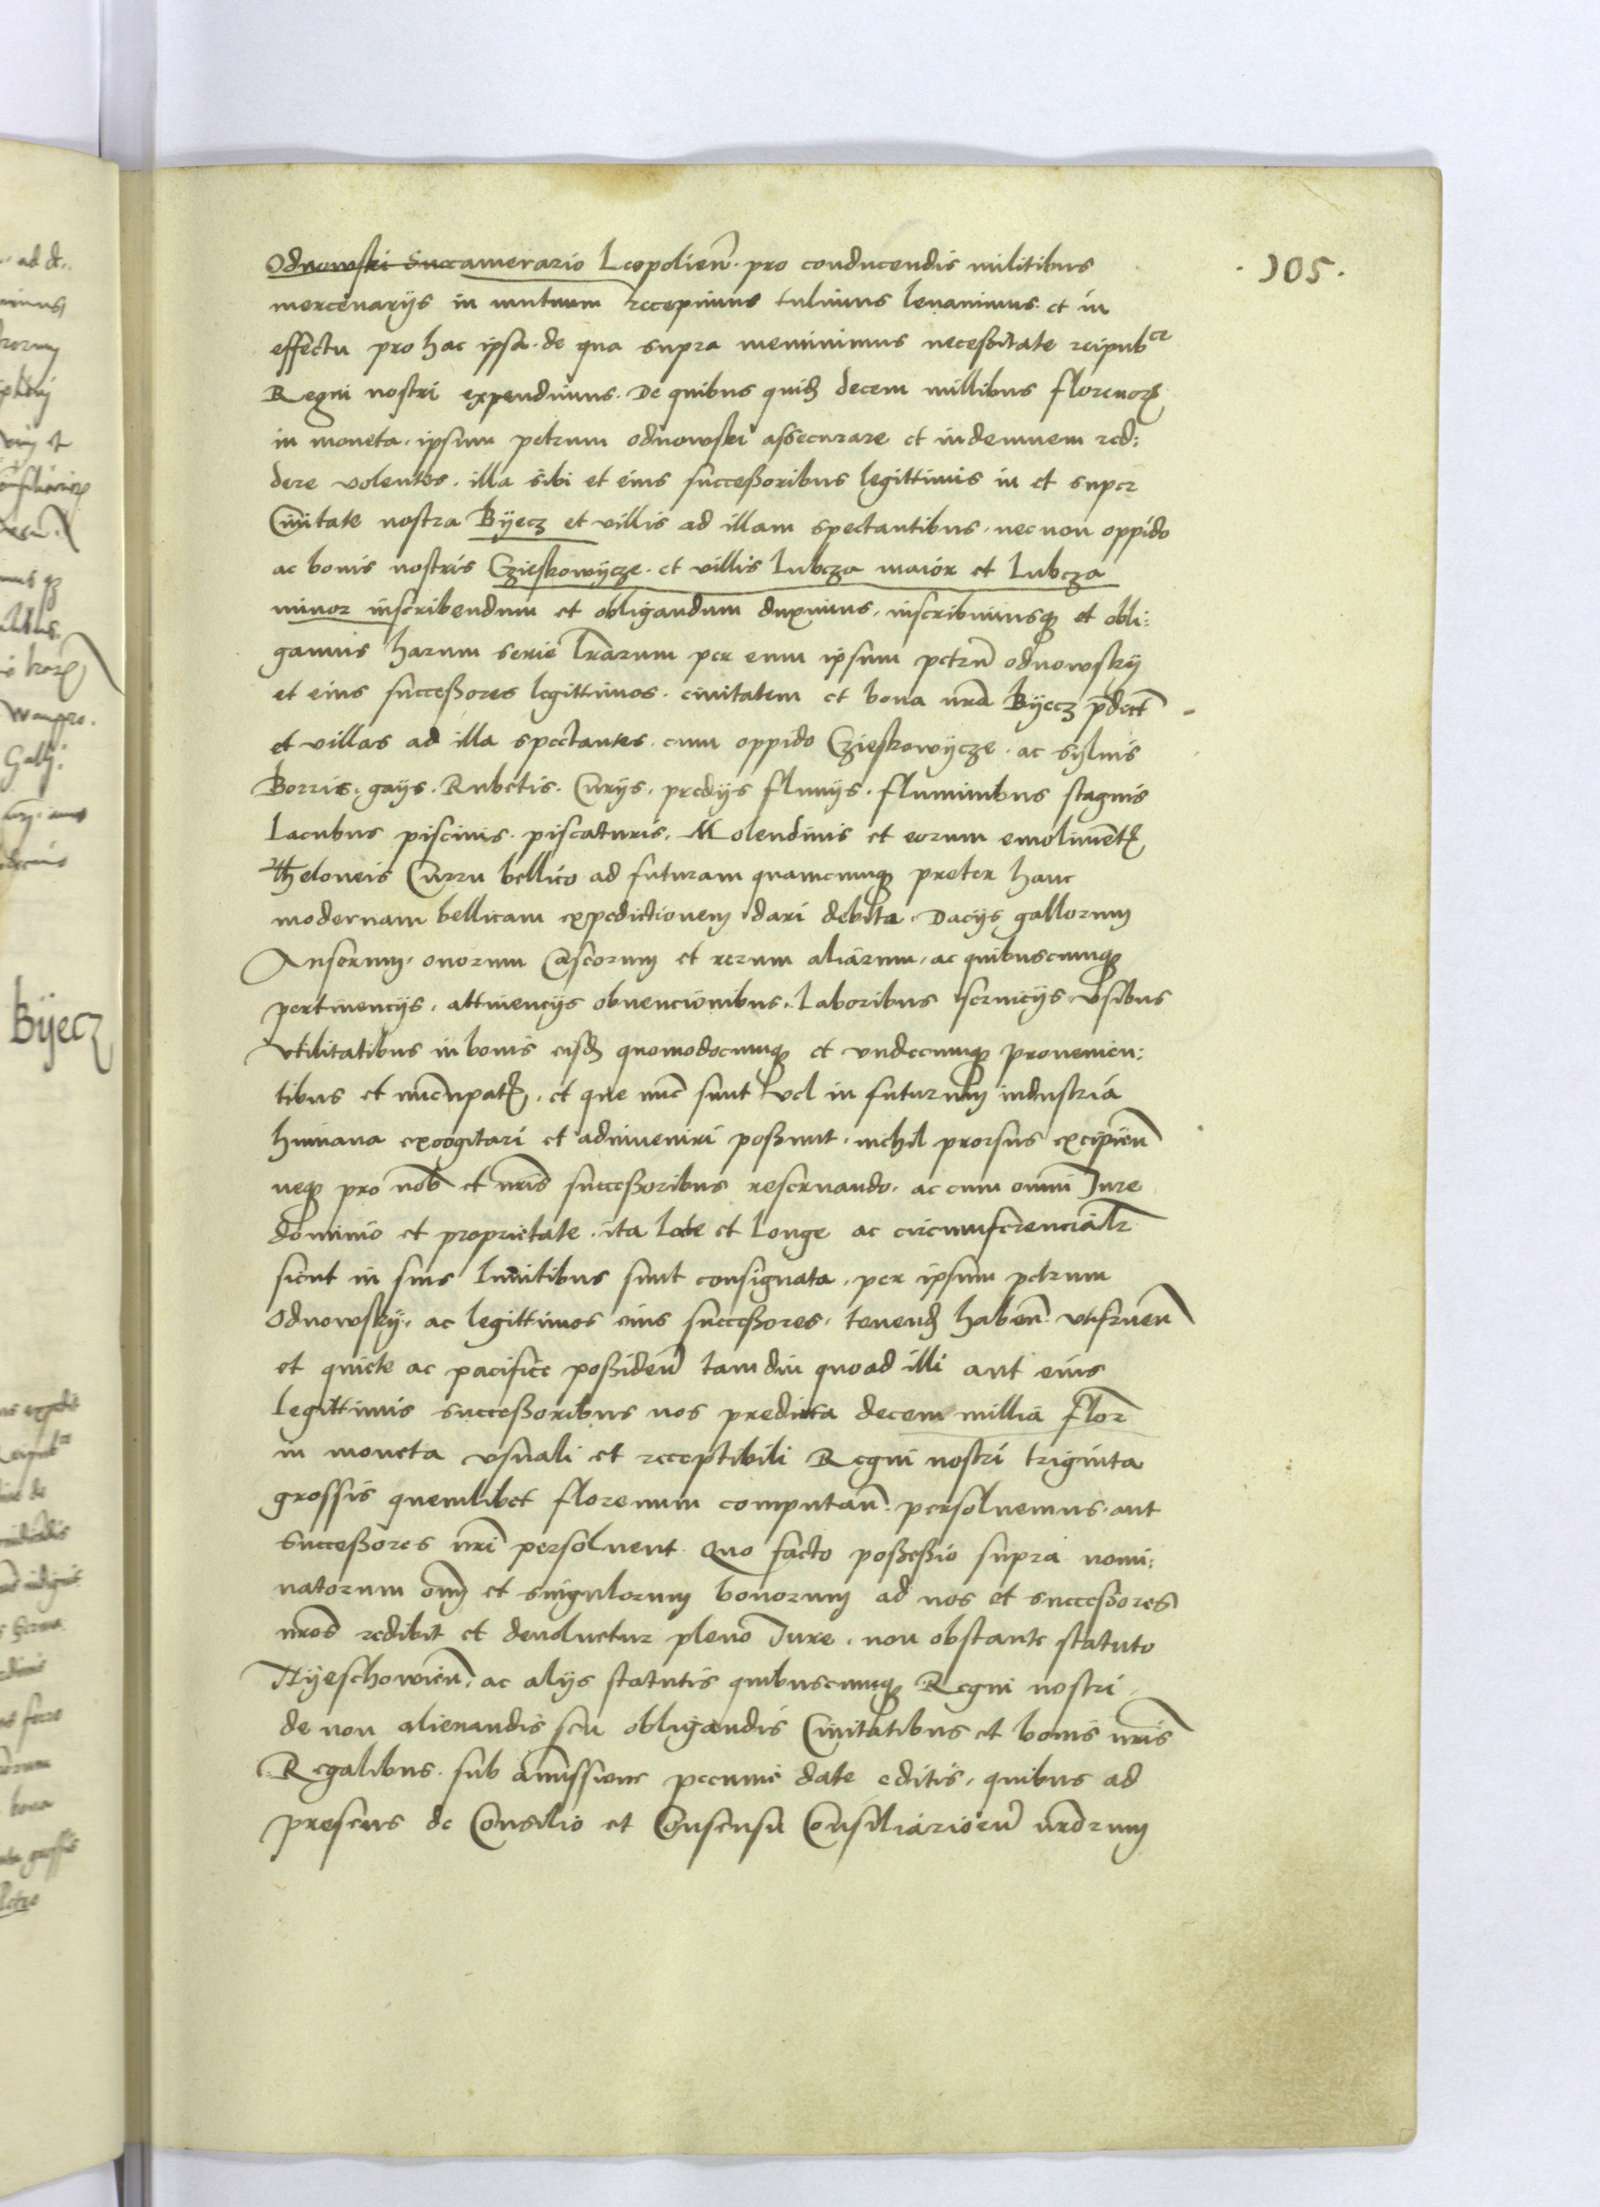 .105.
Odnowski Succamerario Leopolien̄. pro conducendis militibus
mercenarijs in mutuum recepimus tulimus leuauimus. et in
effectu pro hac ipsa. de qua supra meminimus necessitate reipubce
Regni nostri expendimus. De quibus quidē decem millibus florenorꝝ
in moneta. ipsum petrum odnowski assecurare et indemnem red:
dere volentes. illa sibi et eius successoribus legittimis in et super
Ciuitate nostra Bÿecz et villis ad illam spectantibus. nec non oppido
ac bonis nostris Czieskowÿcze. et villis Lubcza maior et Lubcza
minor inscribendum et obligandum duximus. inscribimusqꝫ et obli:
gamus harum serie lr̄arum per eum ipsum petrū odnowskÿ
et eius successores legittimos. ciuitatem et bona nrā Bÿecz p̄dect̄
et villas ad illa spectantes. cum oppido Czieskowÿcze. ac sÿluis
Borris. gaÿs. Rubetis. Curÿs. predÿs fluuÿs. fluminibus stagnis
Lacubus piscinis. piscaturis. Molendinis et eorum emolimentꝭ
Theloneis Curru bellico ad futuram quamcumqꝫ preter hanc
modernam bellicam expedictionem dari debita. Dacÿs gallorum
Anserum. ouorum Caseorum et rerum aliarum. ac quibuscumqꝫ
pertinencÿs. attinencÿs obuencionibus. Laboribus seruicÿs vsibus
vtilitatibus in bonis eisdē quomodocumqꝫ et vndecumqꝫ prouenien:
tibus et nuncupatꝭ. et que nunc sunt vel in futurum industria
humana excogitari et adinueniri possunt. nichil prorsus excipien̄
neqꝫ pro nob̄ et nr̄is successoribus reseruando. ac cum omni Jure
dominio et proprietate. ita late et longe ac circumferencialr̄
sicut in suis limitibus sunt consignata. per ipsum petrum
Odnowskÿ. ac legittimos eius successores. tenend̄ haben̄. vtifruen̄
et quiete ac pacifice possiden̄ tam diu quoad illi aut eius
legittimis successoribus nos predicta decem millia flor̄
in moneta vsuali et receptibili Regni nostri triginta
grossis quemlibet florenum computan̄. persoluemus. aut
successores nr̄i persoluent. Quo facto possessio supra nomi:
natorum om̄ et singulorum bonorum ad nos et successores
nr̄os redibit et deuoluetur pleno Jure. non obstante statuto
Nÿeschowien̄. ac alÿs statutis quibuscumqꝫ Regni nostri
de non alienandis seu obligandis Ciuitatibus et bonis nr̄is
Regalibus. sub amissione pecunie date editis. quibus ad
presens de Consilio et Consensu Consiliariorū nr̄orum
Bÿecz